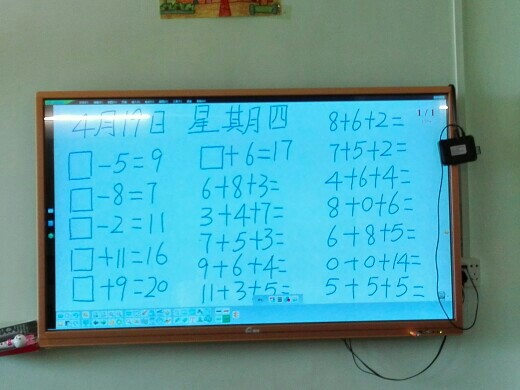 4月19日 星期四
□-5=9
□-8=7
□-2=11
□+11=16
□+9=20
□+6=17
6+8+3=
3+4+7=
7+5+3=
9+6+4=
11+3+5=
1/1
8+6+2=
7+5+2=
4+6+4=
8+0+6=
6+8+5=
0+0+14=
5+5+5=